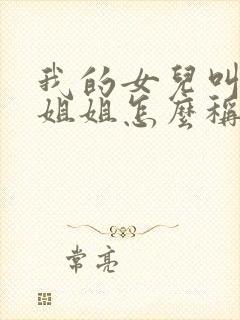 我的女兒叫
姐姐怎麼稱
常亮